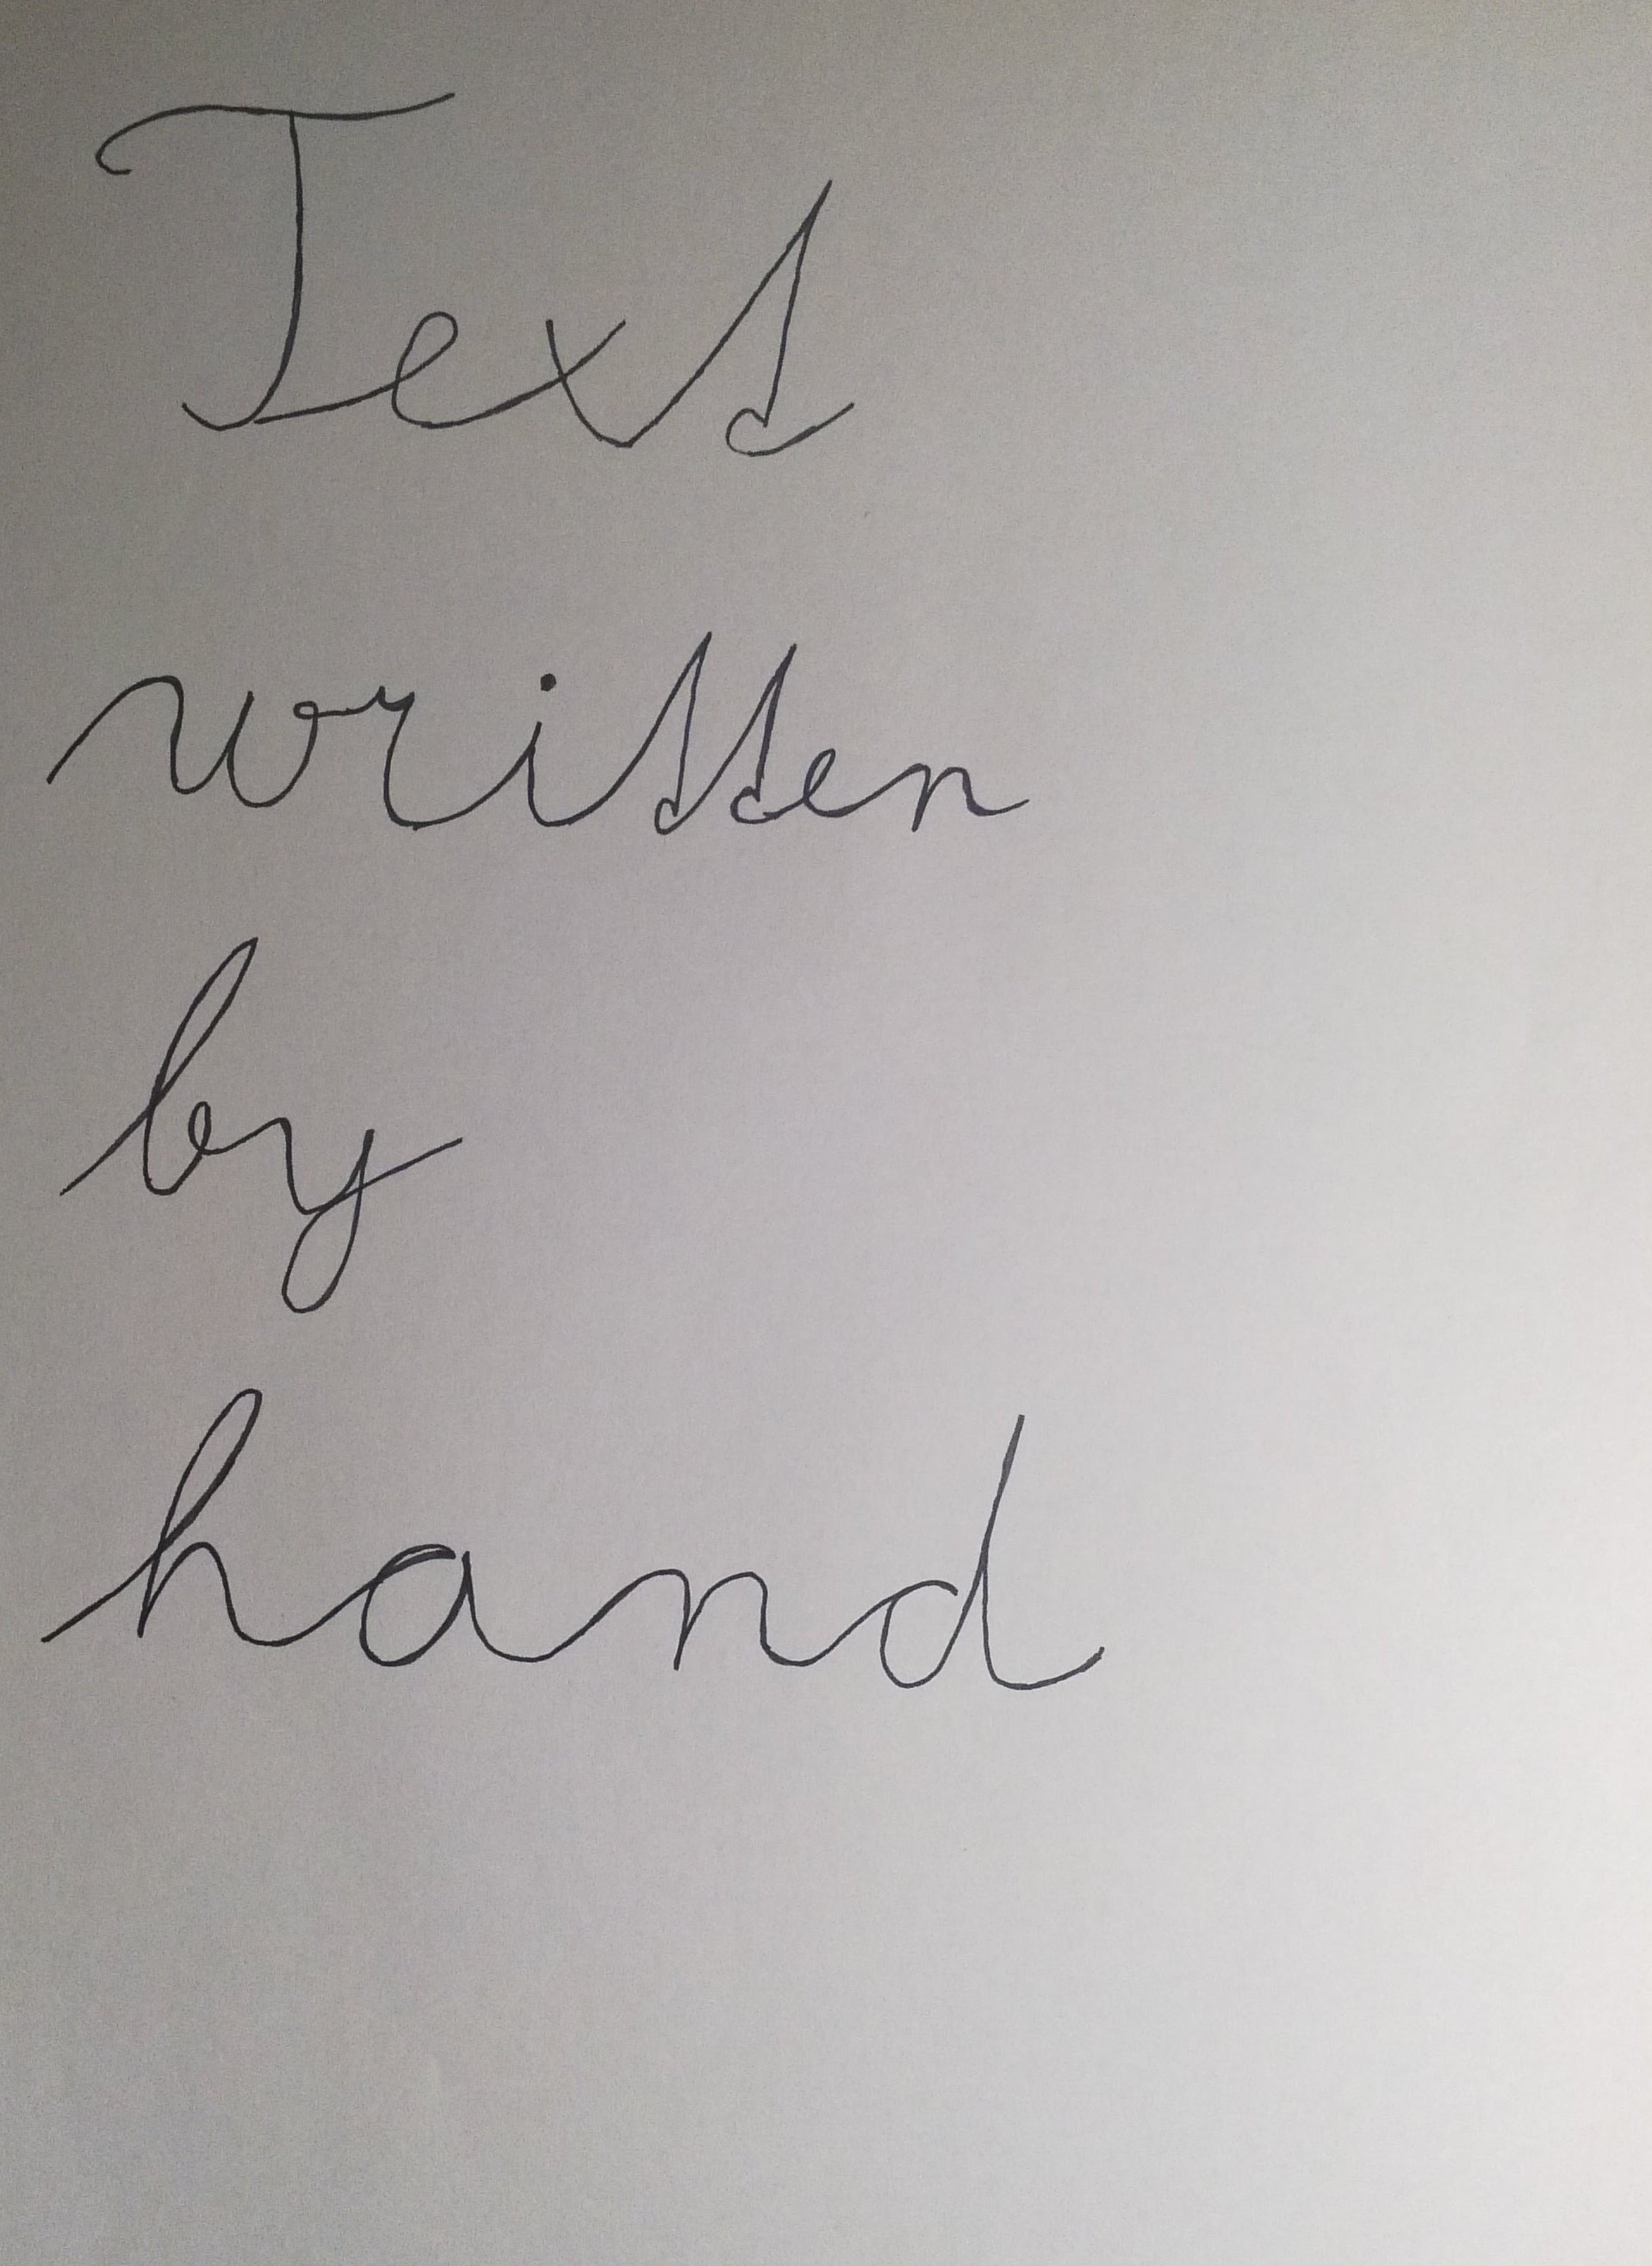 Text
written
by
hand